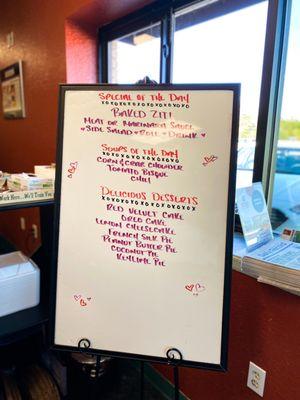 Special of the Day
xoxoxoxoxoxoxoxoxo
Baked Ziti
Meat or Marinara Sauce
Side Salad Roll Drink
Soups of the Day
xoxoxoxoxoxoxoxo
Corn & Crab Chowder
Tomato Bisque
Chili
Delicious Desserts
xoxoxoxoxoxoxoxoxo
Red Velvet Cake
Oreo Cake
Lemon Cheesecake
French Silk Pie
Peanut Butter Pie
Coconut Pie
Keylime Pie